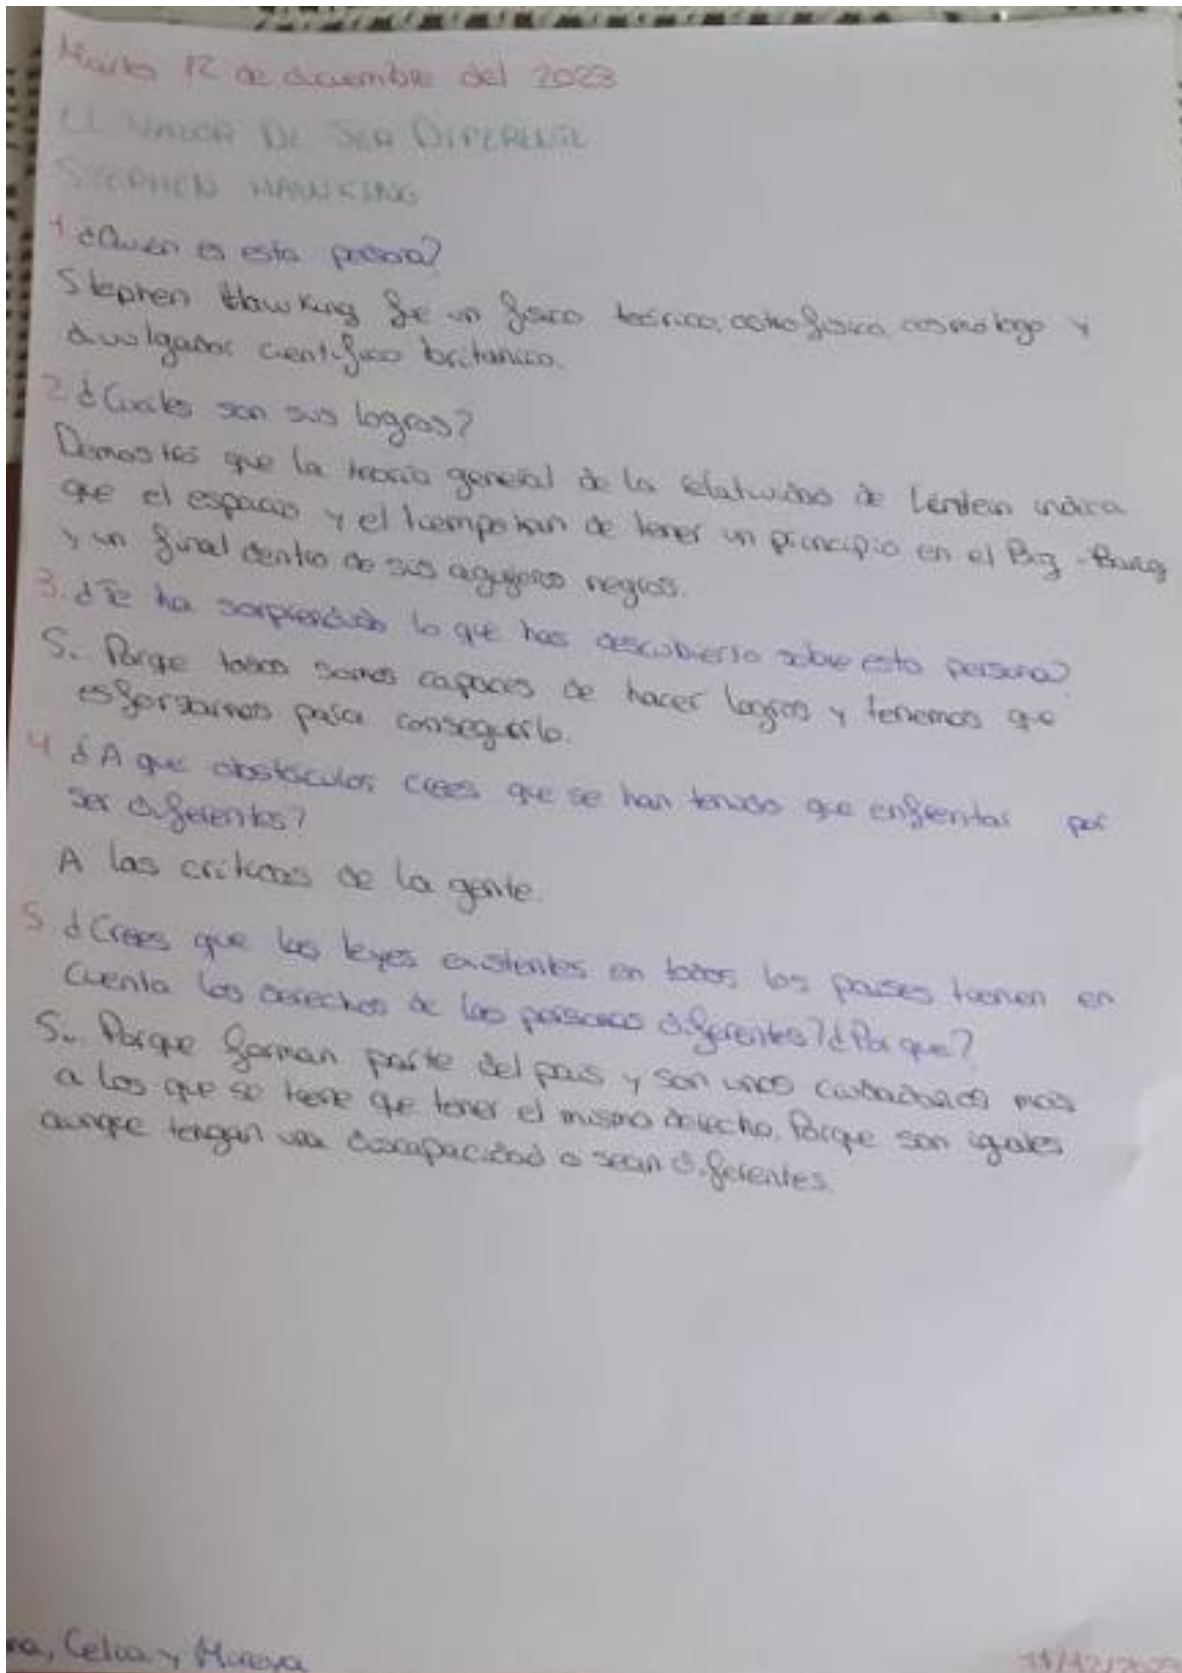 Martes 12 de diciembre del 2023
EL VALOR DE SER DIFERENTE
STEPHEN HAWKING
1 ¿Quién es esta persona?
Stephen Hawking fue un físico teórico, astrofísico, cosmólogo y
divulgador científico britanico.
2 ¿Cuales son sus logros?
Demostró que la teoría general de la relatividad de indica
que el espacio y el tiempo han de tener un principio en el Big-Bang
y un final dentro de sus agujeros negros.
3. ¿Te ha sorprendido lo que has descubierto sobre esta persona?
Si. Porqe todos somos capaces de hacer logros y tenemos que
esforzarnos para conseguirlo.
4 ¿A que obstáculos crees que se han tenido que enfrentar por
ser diferentes?
A las criticas de la gente.
5 ¿Crees que las leyes existentes en todos los paises tienen en
cuenta los derechos de las personas diferentes? ¿Por que?
Si. Porque forman parte del pais y son unos ciudadanos más
a los que se tiene que tener el mismo derecho. Porque son iguales
aunqe tengan una discapacidad o sean diferentes.
Celia y